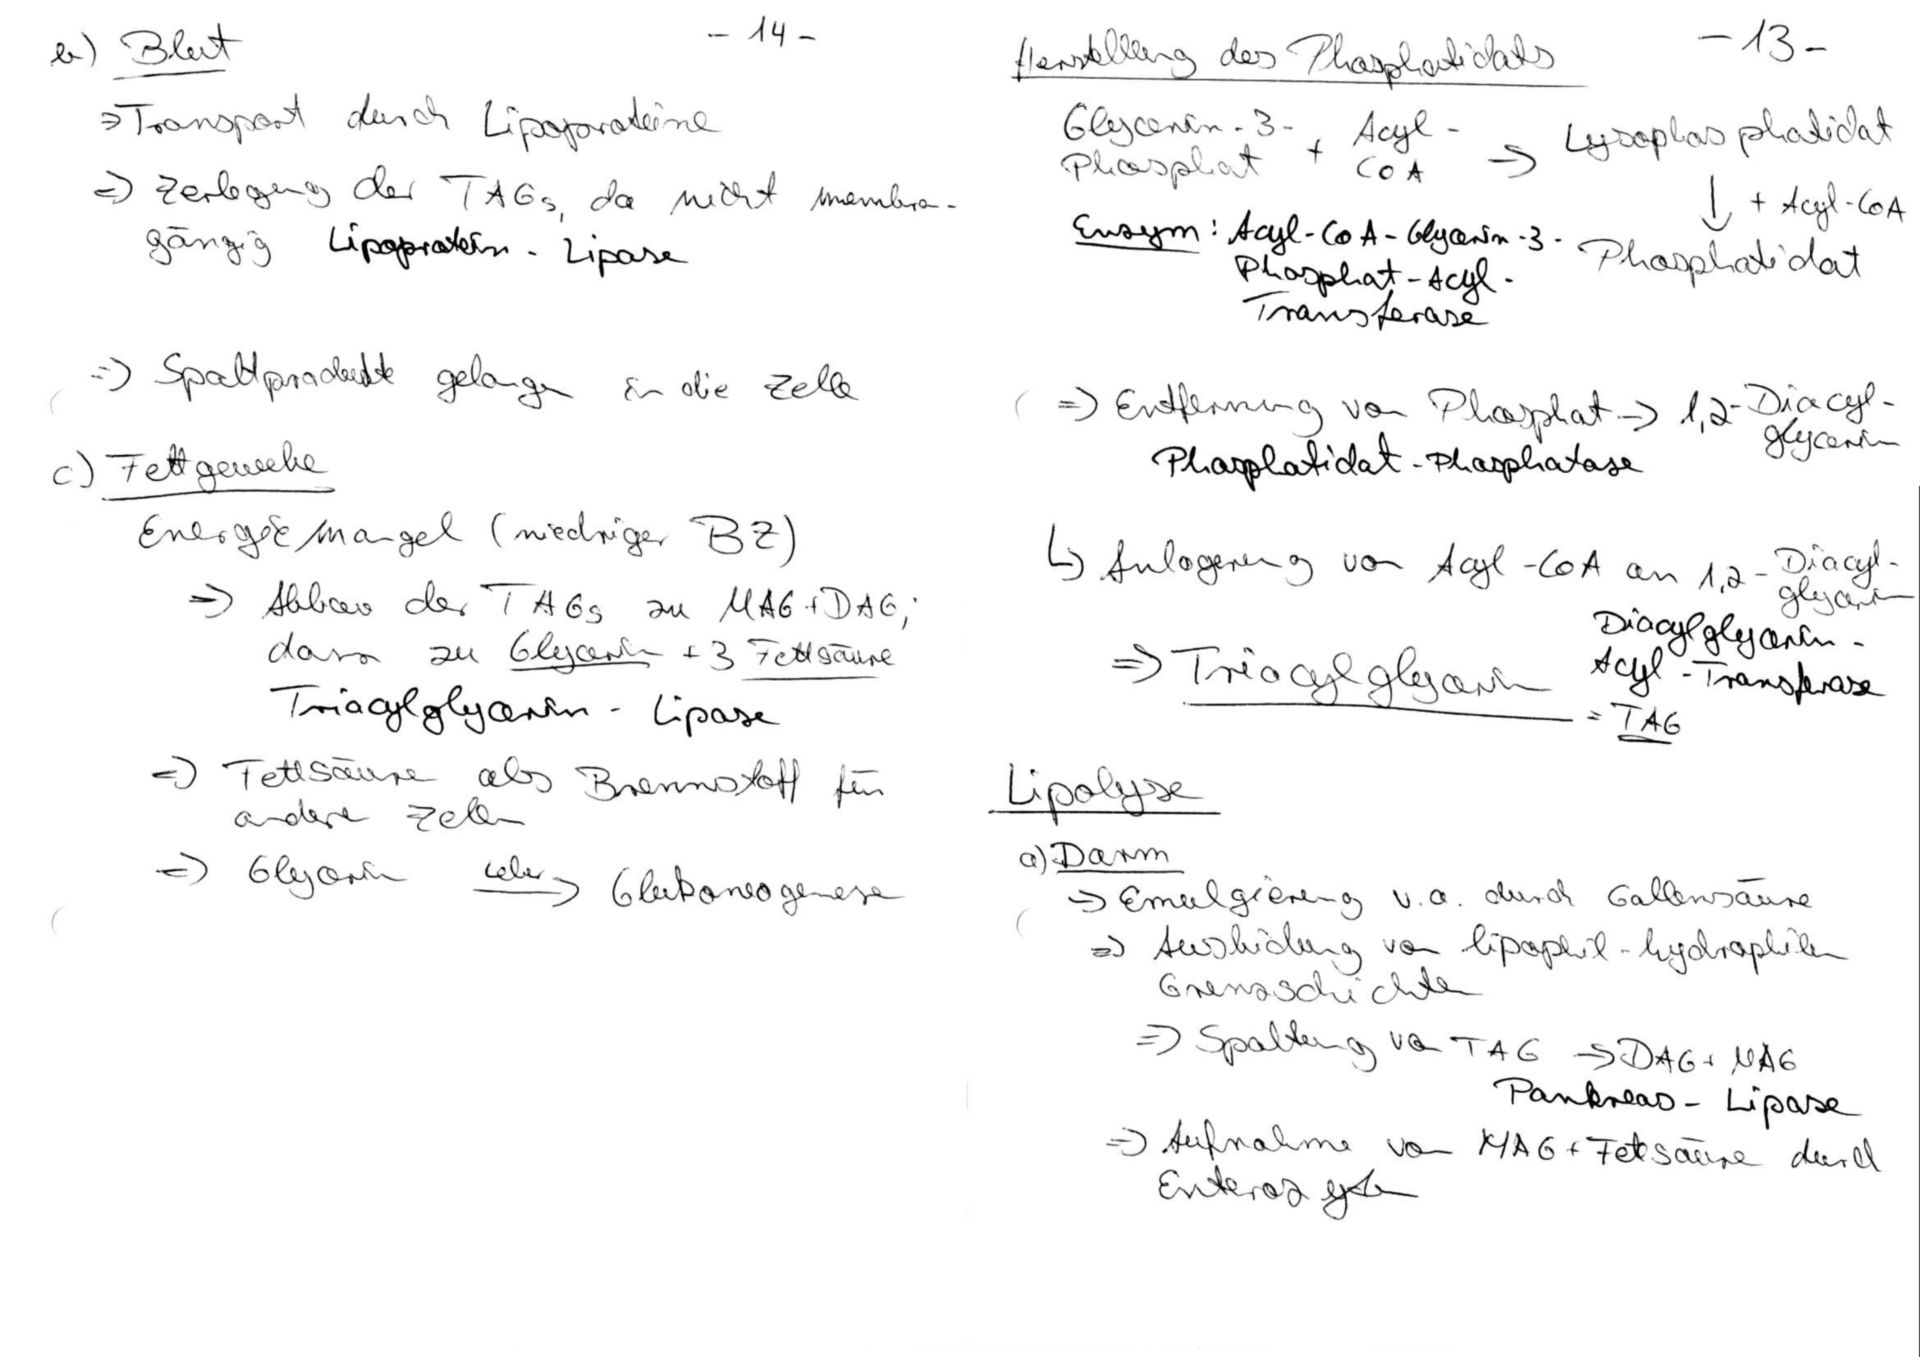 b) Blut
- 14 -
⇒ Transport durch Lipoproteine
⇒ Zerlegung der TAGs, da nicht membra-
gängig Lipoprotein - Lipase
⇒ Spaltprodukte gelangen in die Zelle
c) Fettgewebe
Energiemangel (niedriger BZ)
⇒ Abbau der TAGs zu MAG + DAG;
dann zu Glycerin + 3 Fettsäure
Triacylglycerin - Lipase
⇒ Fettsäure als Brennstoff für
andere Zellen
⇒ Glycerin Leber → Glukoneogenese
Herstellung des Phosphatidats
- 13 -
Glycerin-3- + Acyl- ⇒ Lysophosphatidat
Phosphat CoA
↓ + Acyl-CoA
Enzym: Acyl-CoA-Glycerin-3- Phosphatidat
Phosphat-Acyl-
Transferase
⇒ Entfernung von Phosphat → 1,2-Diacyl-
glycerin
Phosphatidat-Phosphatase
↳ Anlagerung von Acyl-CoA an 1,2-Diacyl-
glycerin
Diacylglycerin-
⇒ Triacylglycerin Acyl-Transferase
= TAG
Lipolyse
a) Darm
→ Emulgierung v.a. durch Gallensäure
⇒ Ausbildung von lipophil-hydrophilen
Grenzschichten
⇒ Spaltung von TAG → DAG + MAG
Pankreas - Lipase
⇒ Aufnahme von MAG + Fettsäure durch
Enterozyten